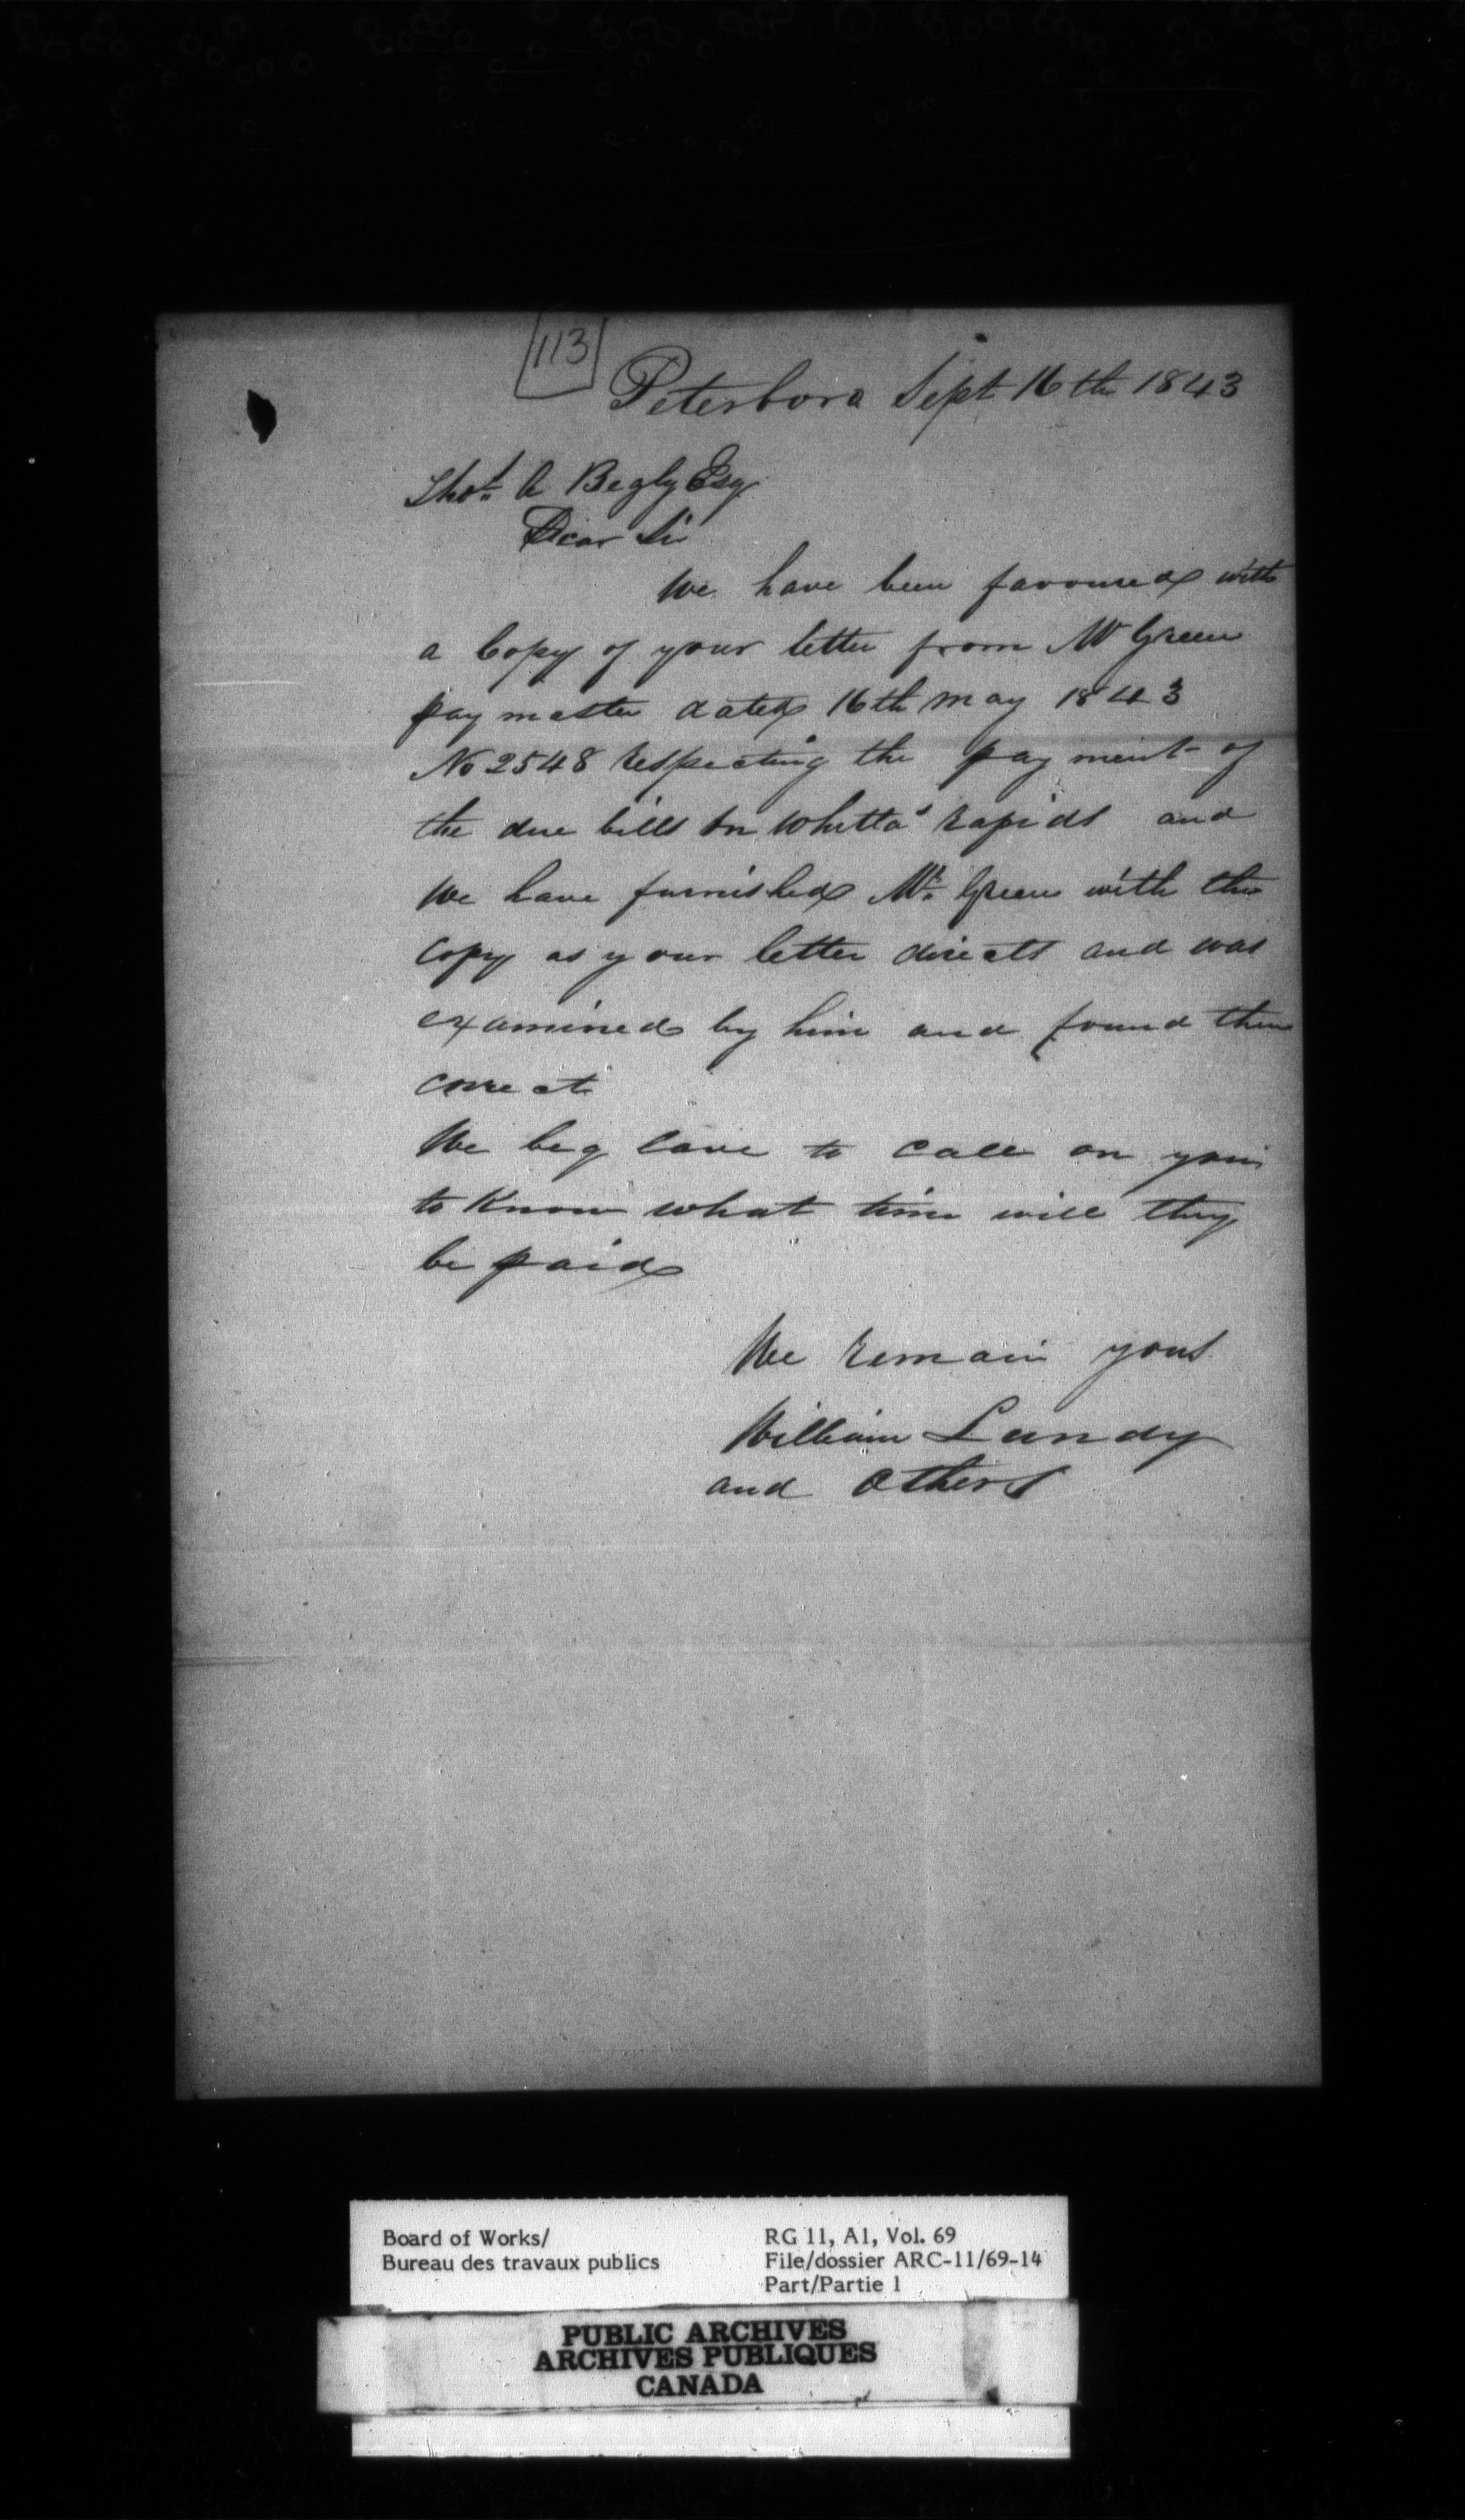 113
Peterboro Sept 16th 1843
Thos A Begly Esq
Dear Sir
We have been favoured with
a Copy of your letter from Mr Green
pay master dated 16th may 1843
No 2548 respecting the payment of
the due bills on Whitta's rapids and
We have furnished Mr. Green with the
copy as your letter directs and was
examined by him and found them
correct
We beg leave to call on you
to Know what time will they
be paid
We remain yours
William Lundy
and others
Board of Works/
Bureau des travaux publics
RG 11, A1, Vol. 69
File/dossier ARC-11/69-14
Part/Partie 1
PUBLIC ARCHIVES
ARCHIVES PUBLIQUES
CANADA